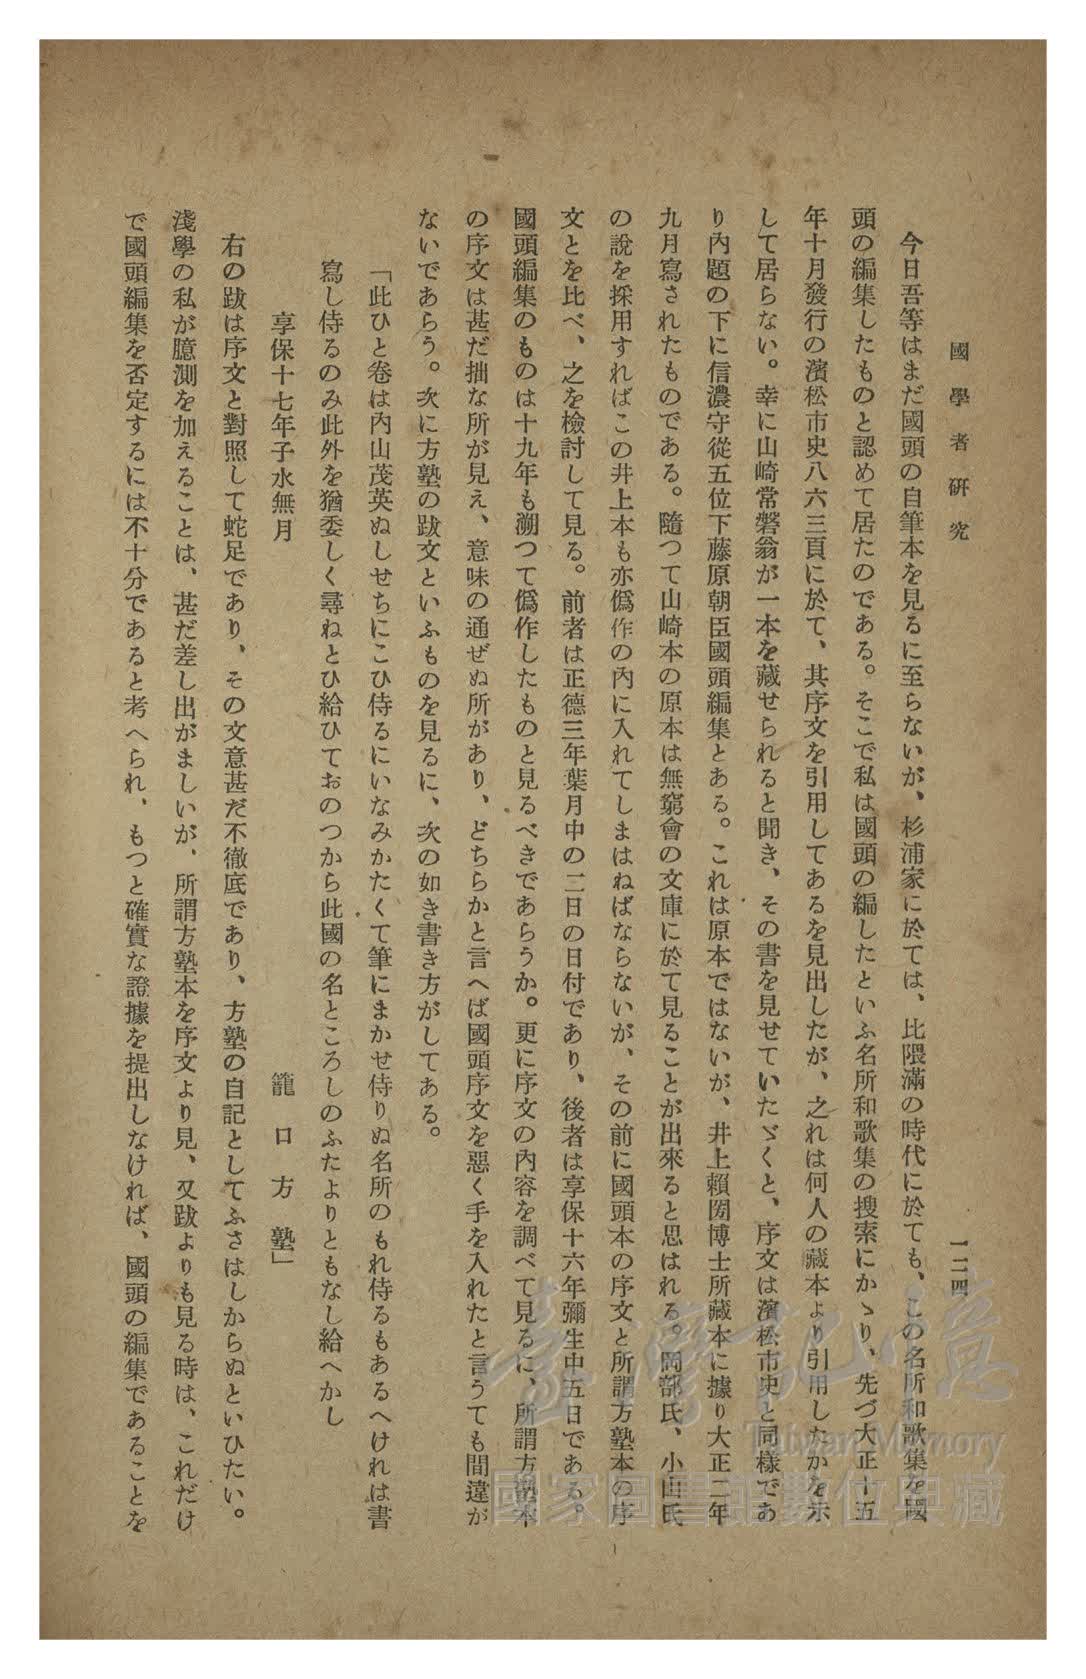 國學者研究
一二四
今日吾等はまだ國頭の自筆本を見るに至らないが、杉浦家に於ては、比隈滿の時代に於ても、この名所和歌集を國
頭の編集したものと認めて居たのである。そこで私は國頭の編したといふ名所和歌集の搜索にかゝり、先づ大正十五
年十月發行の濱松市史八六三頁に於て、其序文を引用してあるを見出したが、之れは何人の藏本より引用したかを示
して居らない。幸に山崎常磐翁が一本を藏せられると聞き、その書を見せていたゞくと、序文は濱松市史と同樣であ
り內題の下に信濃守從五位下藤原朝臣國頭編集とある。これは原本ではないが、井上賴圀博士所藏本に據り大正二年
九月寫されたものである。隨つて山崎本の原本は無窮會の文庫に於て見ることが出來ると思はれる。岡部氏、小山氏
の說を採用すればこの井上本も亦僞作の內に入れてしまはねばならないが、その前に國頭本の序文と所謂方塾本の序
文とを比べ、之を檢討して見る。前者は正德三年葉月中の二日の日付であり、後者は享保十六年彌生中五日である。
國頭編集のものは十九年も溯つて僞作したものと見るべきであらうか。更に序文の內容を調べて見るに、所謂方塾本
の序文は甚だ拙な所が見え、意味の通ぜぬ所があり、どちらかと言へば國頭序文を惡く手を入れたと言うても間違が
ないであらう。次に方塾の跋文といふものを見るに、次の如き書き方がしてある。
「此ひと卷は內山茂英ぬしせちにこひ侍るにいなみかたくて筆にまかせ侍りぬ名所のもれ侍るもあるへけれは書
寫し侍るのみ此外を猶委しく尋ねとひ給ひておのつから此國の名ところしのふたよりともなし給へかし
享保十七年子水無月
籠口方塾」
右の跋は序文と對照して蛇足であり、その文意甚だ不徹底であり、方塾の自記としてふさはしからぬといひたい。
淺學の私が臆測を加えることは、甚だ差し出がましいが、所謂方塾本を序文より見、又跋よりも見る時は、これだけ
で國頭編集を否定するには不十分であると考へられ、もつと確實な證據を提出しなければ、國頭の編集であることを
臺灣記憶
Taiwan Memory
國家圖書館數位典藏